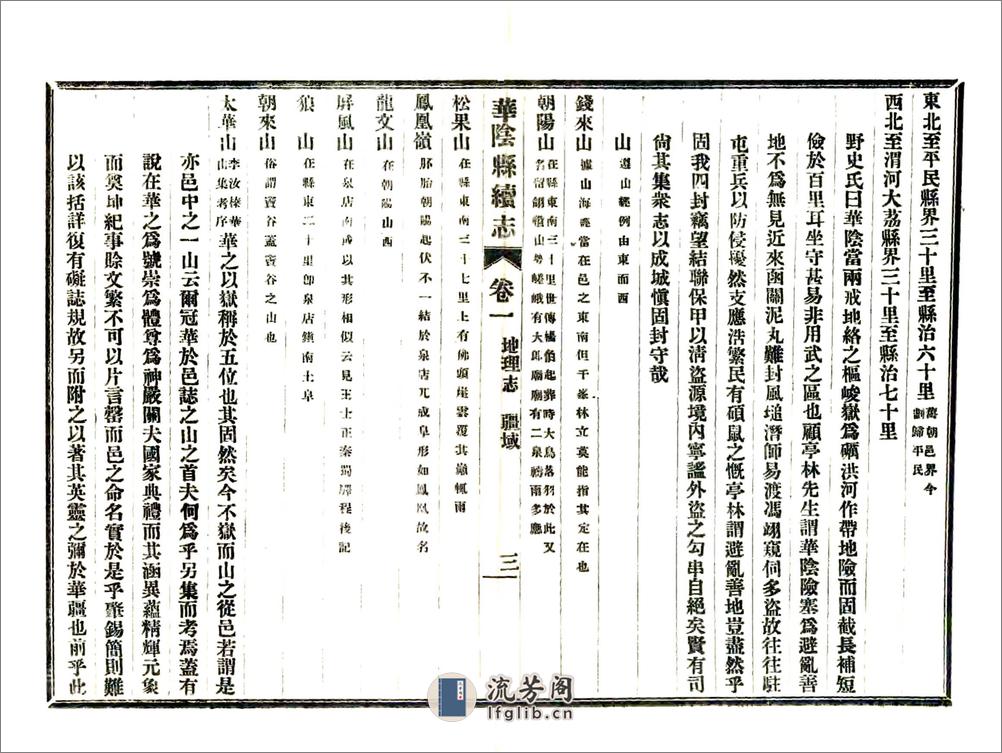 東北至平民縣界三十里至縣治六十里舊朝邑界今劃歸平民
西北至渭河大荔縣界三十里至縣治七十里
野史氏曰華陰當兩戒地絡之樞峻嶽爲礪洪河作帶地險而固截長補短
儉於百里耳坐守甚易非用武之區也顧亭林先生謂華陰險塞爲避亂善
地不爲無見近來函關泥丸難封風塠潛師易渡馮翊窺伺多盜故往往駐
屯重兵以防侵擾然支應浩繁民有碩鼠之慨亭林謂避亂善地豈盡然乎
固我四封竊望結聯保甲以淸盜源境内寧謐外盜之勾串自絕矣賢有司
尙其集衆志以成城愼固封守哉
山遵山經例由東而西
錢來山據山海經當在邑之東南但千峯林立莫能指其定在也
朝陽山在縣東南三十里世傳楊伯起葬時大鳥落羽於此又名留翎嶺山勢嵯峨有大郎廟廟有二泉禱雨多應
華陰縣續志 卷一 地理志 疆域 三
松果山在縣東南三十七里上有佛頭崖雲覆其巔輒雨
鳳凰嶺胚胎朝陽起伏不一結於泉店兀成阜形如鳳臥故名
龍文山在朝陽山西
屏風山在泉店南或以其形相似云見王士正秦蜀驛程後記
狼山在縣東二十里卽泉店鎮南土阜
朝來山俗謂賣谷蓋賣谷之山也
太華山李汝榛華山集考序華之以嶽稱於五位也其固然矣今不嶽而山之從邑若謂是
亦邑中之一山云爾冠華於邑誌之山之首夫何爲乎另集而考焉蓋有
說在華之爲號崇爲體尊爲神嚴關夫國家典禮而其涵異蘊精輝元象
而奠坤紀事賒文繁不可以片言罄而邑之命名實於是乎肇錫簡則難
以該括詳復有礙誌規故另而附之以著其英靈之彌於華疆也前乎此
流芳阁
lfglib.cn